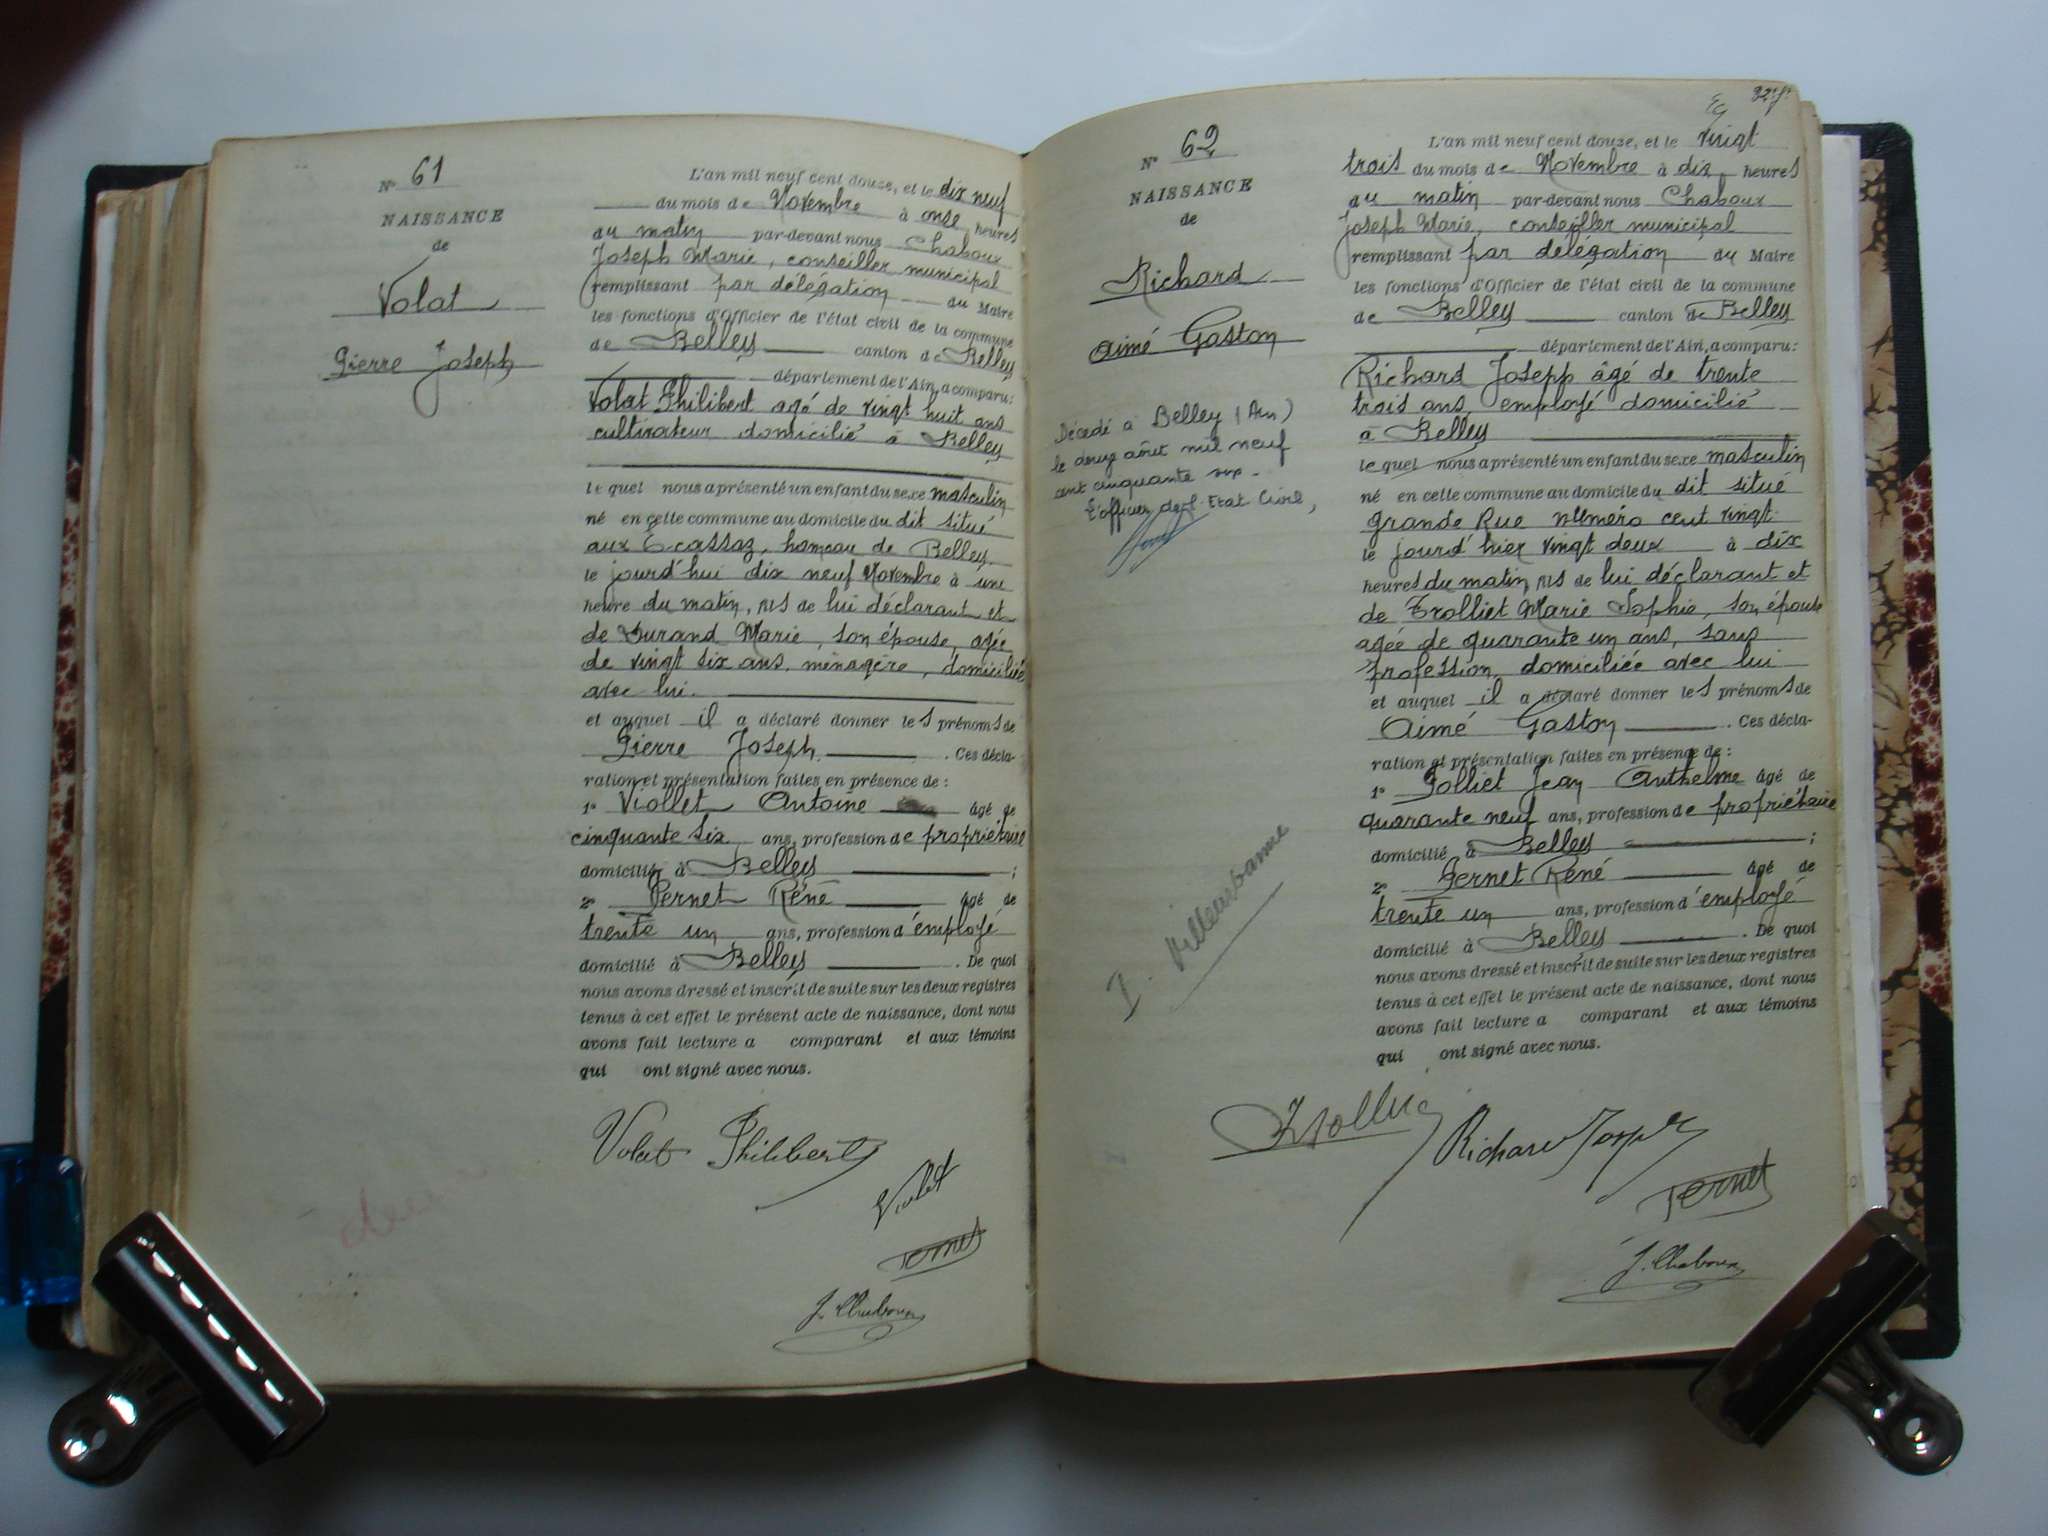 N° 61
NAISSANCE
de
Volat
Pierre Joseph
L'an mil neuf cent douze, et le dix neuf
du mois de Novembre à onze heures
au matin par-devant nous Chaboux
Joseph Marie, conseiller municipal
remplissant par délégation du Maire
les fonctions d'Officier de l'état civil de la commune
de Belley canton de Belley
département de l'Ain, a comparu:
Volat Philibert agé de vingt huit ans
cultivateur domicilié à Belley
le quel nous a présenté un enfant du sexe masculin
né en cette commune au domicile du dit situé
aux Ecassaz, hameau de Belley
le jourd'hui dix neuf Novembre à une
heure du matin, fils de lui déclarant et
de Durand Marie, son épouse, agée
de vingt six ans, ménagère, domiciliée
avec lui.
et auquel il a déclaré donner les prénoms de
Pierre Joseph. Ces décla-
ration et présentation faites en présence de :
1° Viollet Antoine âgé de
cinquante six ans, profession de propriétaire
domicilié à Belley ;
2° Pernet Réné âgé de
trente un ans, profession d'employé
domicilié à Belley. De quoi
nous avons dressé et inscrit de suite sur les deux registres
tenus à cet effet le présent acte de naissance, dont nous
avons fait lecture a comparant et aux témoins
qui ont signé avec nous.
Volat Philibert
Violet
Pernet
J. Chaboux
N° 62
NAISSANCE
de
Richard
Aimé Gaston
Décédé à Belley (Ain)
le douze août mil neuf
cent cinquante six -
L'officier de l'Etat Civil,
I. Villeurbanne
L'an mil neuf cent douze, et le vingt
trois du mois de Novembre à dix heures
au matin par-devant nous Chaboux
Joseph Marie, conseiller municipal
remplissant par délégation du Maire
les fonctions d'Officier de l'état civil de la commune
de Belley canton de Belley
département de l'Ain, a comparu:
Richard Joseph âgé de trente
trois ans, employé domicilié
à Belley
le quel nous a présenté un enfant du sexe masculin
né en cette commune au domicile du dit situé
Grande Rue numéro cent vingt
le jourd'hier vingt deux à dix
heures du matin, fils de lui déclarant et
de Trolliet Marie Sophie, son épouse
agée de quarante un ans, sans
profession, domiciliée avec lui
et auquel il a déclaré donner les prénoms de
Aimé Gaston. Ces décla-
ration et présentation faites en présence de :
1° Jolliet Jean Anthelme âgé de
quarante neuf ans, profession de propriétaire
domicilié à Belley ;
2° Pernet Réné âgé de
trente un ans, profession d'employé
domicilié à Belley. De quoi
nous avons dressé et inscrit de suite sur les deux registres
tenus à cet effet le présent acte de naissance, dont nous
avons fait lecture a comparant et aux témoins
qui ont signé avec nous.
Richard Joseph
Pernet
J. Chaboux